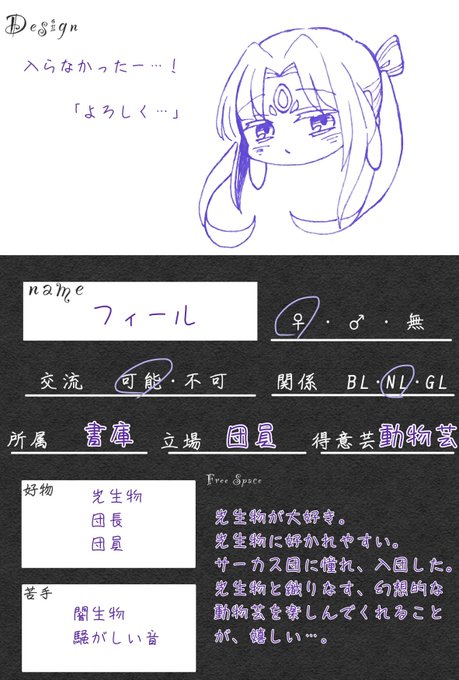 Design
入らなかったー…！
「よろしく…」
name
フィール
♀・♂・無
交流 可能・不可
関係 BL・NL・GL
所属 書庫 立場 団員 得意芸動物芸
好物
光生物
団長
団員
苦手
闇生物
騒がしい音
Free Space
光生物が大好き。
光生物に好かれやすい。
サーカス団に憧れ、入団した。
光生物と織りなす、幻想的な
動物芸を楽しんでくれること
が、嬉しい…。